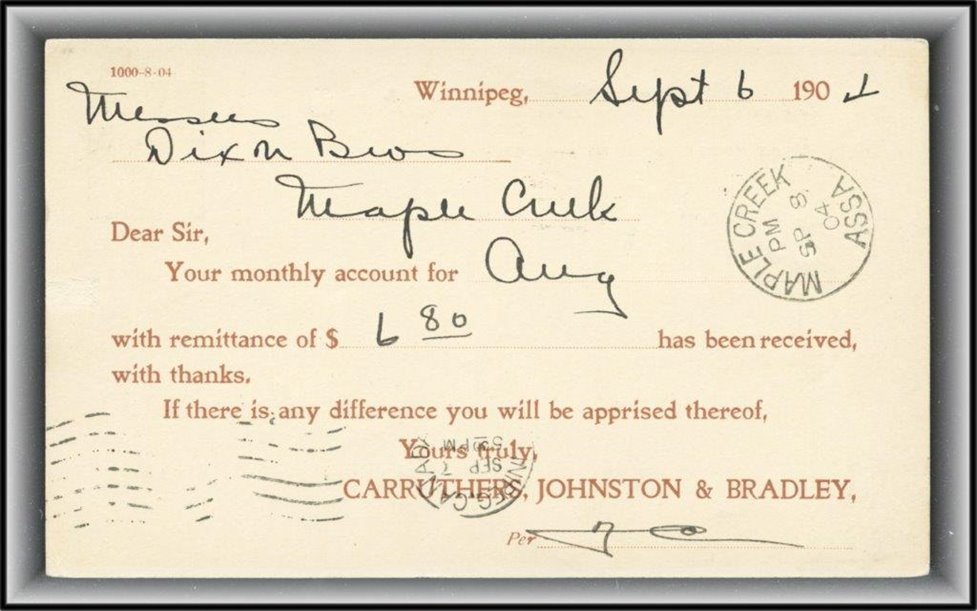 1000-8-04
Winnipeg, Sept 6 1904
Messrs
Dixon Bros
Maple Creek
Dear Sir,
Your monthly account for Aug
with remittance of $ 6 80 has been received,
with thanks.
If there is any difference you will be apprised thereof,
Yours truly,
CARRUTHERS, JOHNSTON & BRADLEY,
Per
MAPLE CREEK
PM
SP 8
04
ASSA